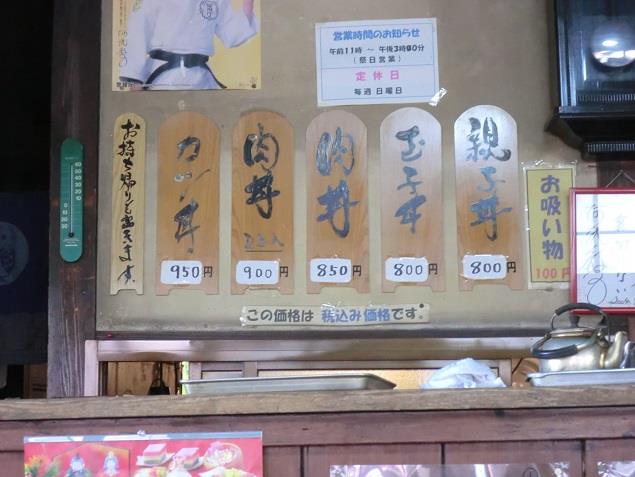 営業時間のお知らせ
午前11時 ～ 午後3時00分
(祭日営業)
定休日
毎週 日曜日
親子丼
800円
玉子丼
800円
肉丼
850円
肉丼
玉子入
900円
カツ丼
950円
お持ち帰りも出来ます。
お吸い物
100円
この価格は 税込み価格です。